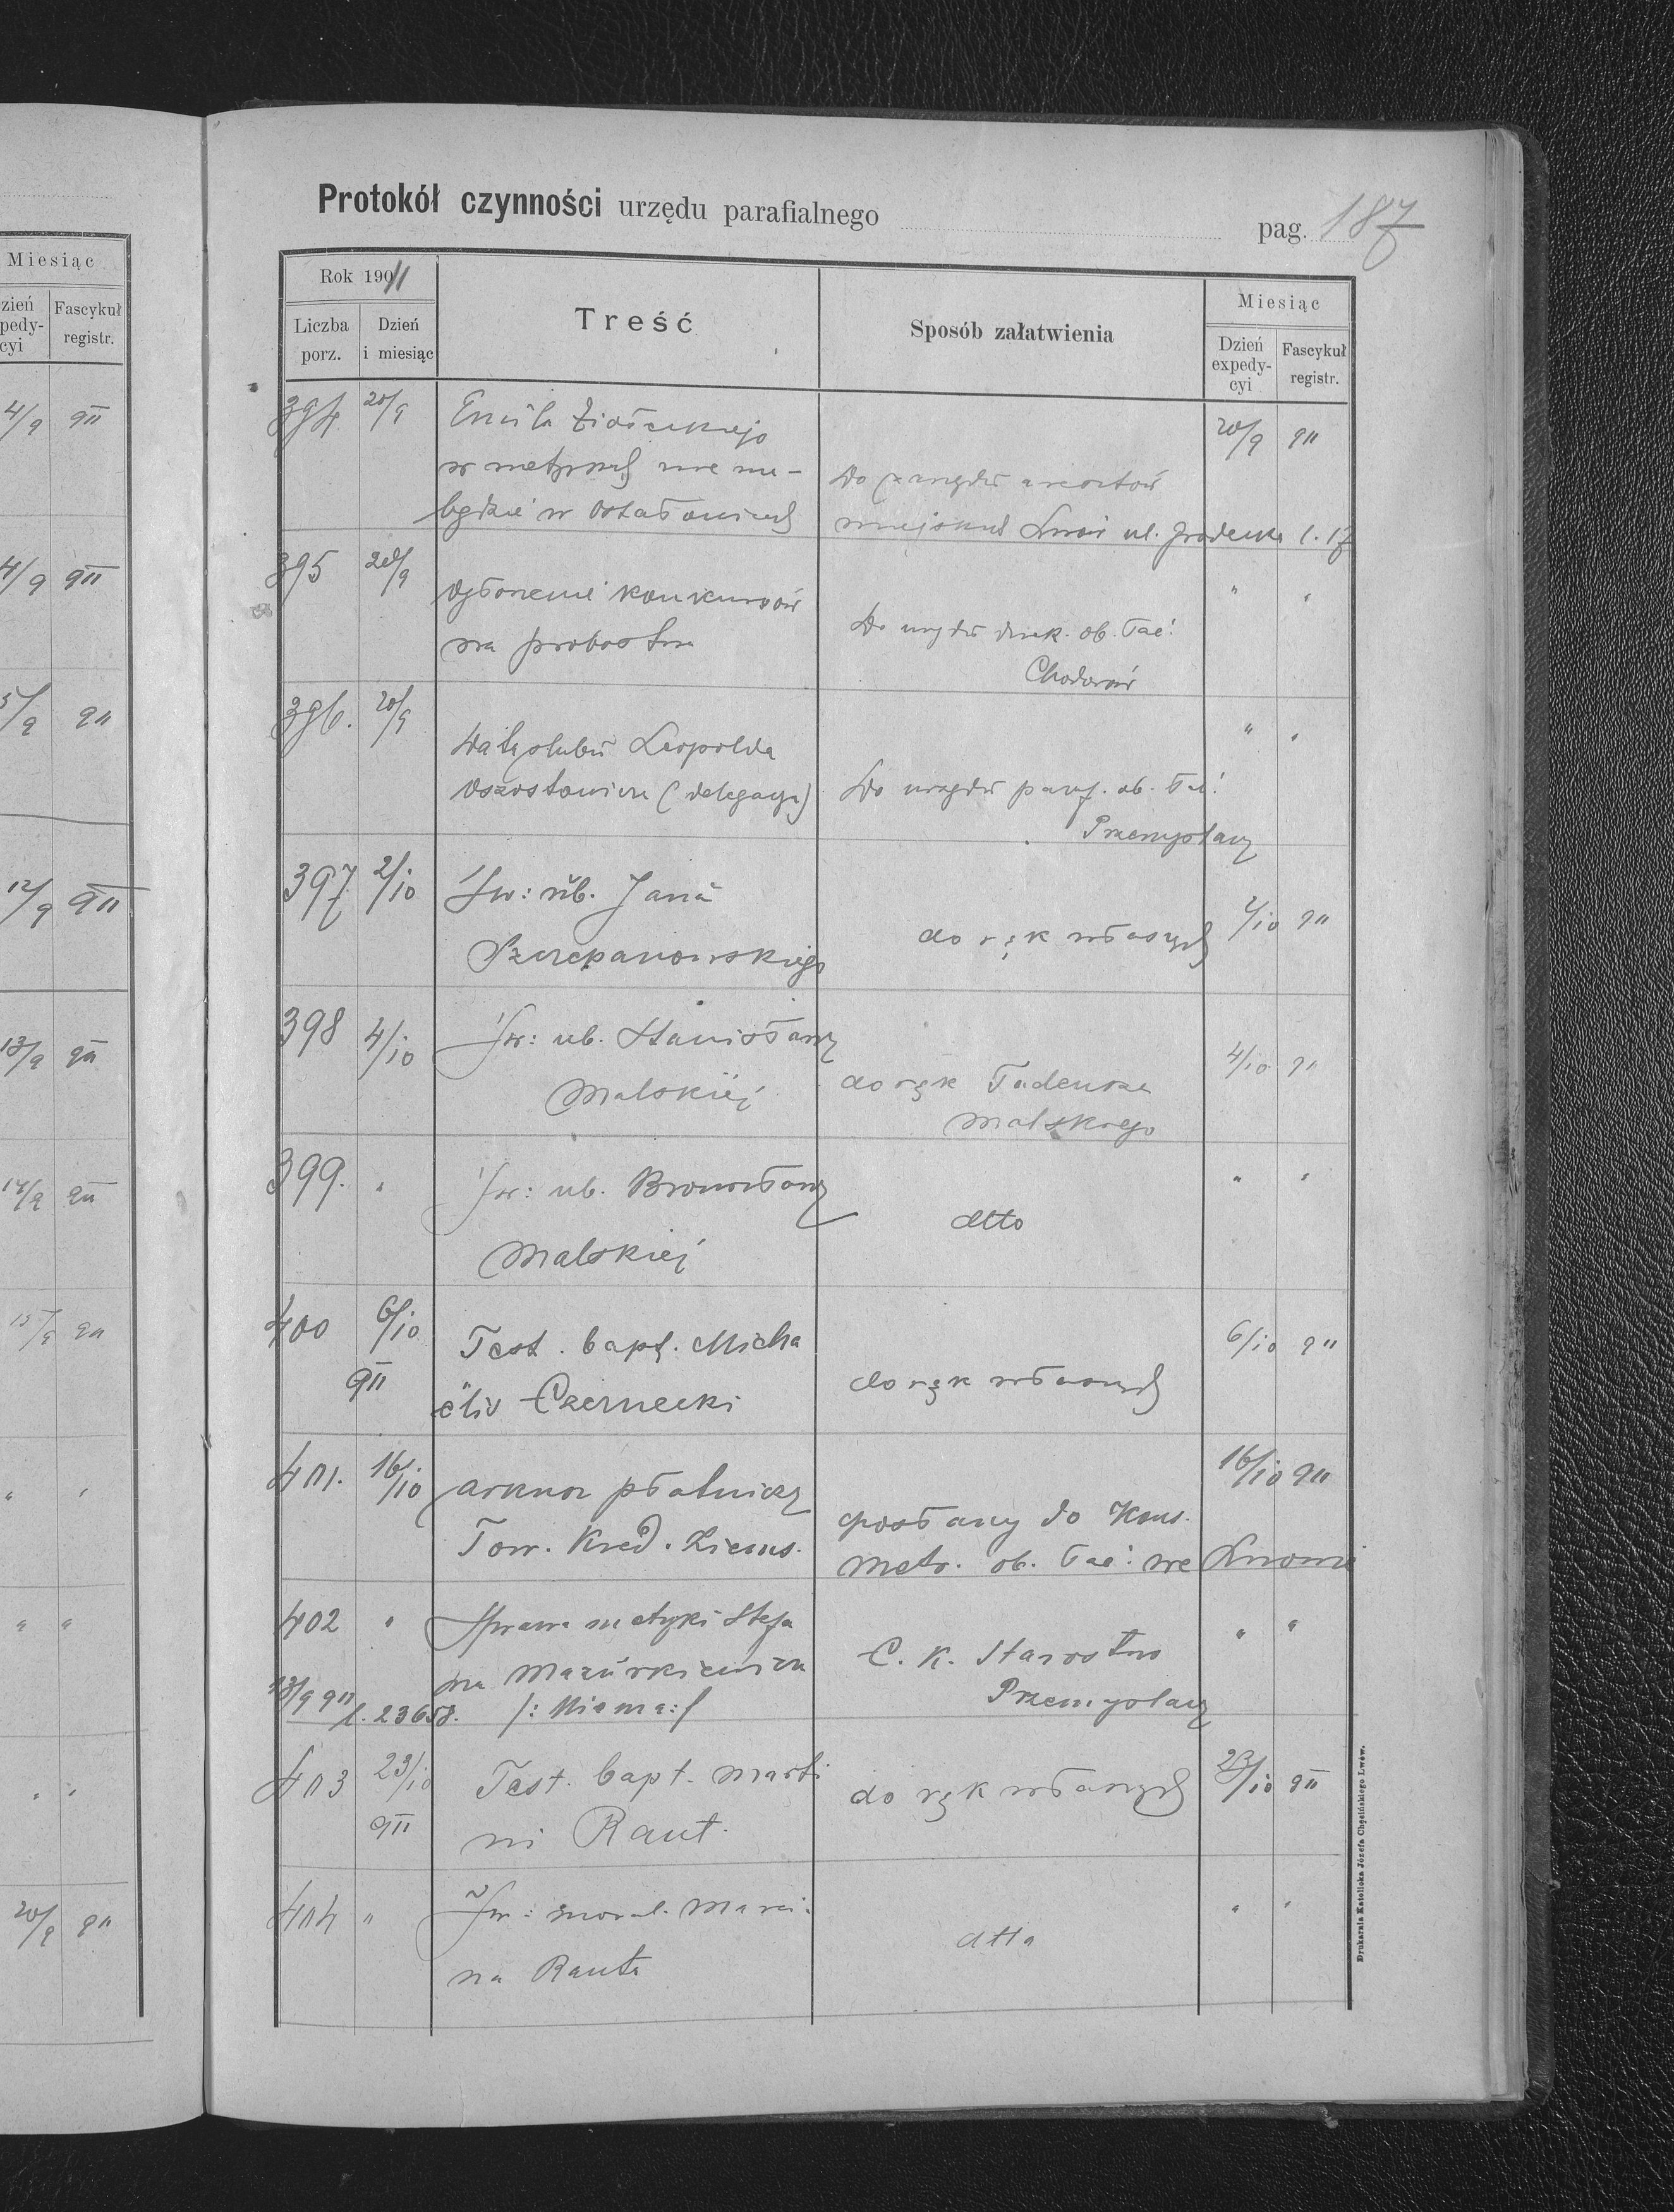 Protokół czynności urzędu parafialnego
pag. 187
Miesiąc
Fascykuł registr.
4/9 911
4/9 911
5/9 911
12/9 911
13/9 911
14/9 911
15/9 911
" "
" "
" "
20/9 911
Rok 1911
Liczba porz.
Dzień i miesiąc
Treść
Sposób załatwienia
Miesiąc
Dzień expedycyi
Fascykuł registr.
394 20/9 Emila
w nie
w
Do aresztów
20/9 911
miejskich Lwów ul. Gródecka l. 17
395 20/9 Ogłoszenie konkursów
na probostwa
Do urzędu dziek. ob. łać:
Chodorów
" "
396. 20/9
Datę ślubu Leopolda
(delegacya)
Do urzędu paraf. ob. łać:
Przemyślany
" "
397 2/10 Św: ub. Jana
Szczepanowskiego
do rąk własnych
2/10 911
398 4/10 Św: ub. Stanisławy
Malskiej
do rąk Tadeusza
Malskiego
4/10 911
399. " Św: ub. Bronisławy
Malskiej
dtto
" "
400 6/10 Test. bapt. Micha
911 ëlis Czernecki
do rąk własnych
6/10 911
401. 16/10 arkusz płatniczy
Tow. Kred. Ziems.
posłany do Kons.
Metr. ob. łać: we Lwowie
16/10 911
402 " Sprawa metryki Stefa
na Mazurkiewicza
13/9 911 l. 23658. /: Niema :/
C. K. Starostwo
Przemyślany
" "
403 23/10 Test. bapt. Marti
911 ni Raut.
do rąk własnych
23/10 911
404 " Św: moral. Marci-
na Rauta
dtto
" "
Drukarnia Katolicka Józefa Chęcińskiego Lwów.